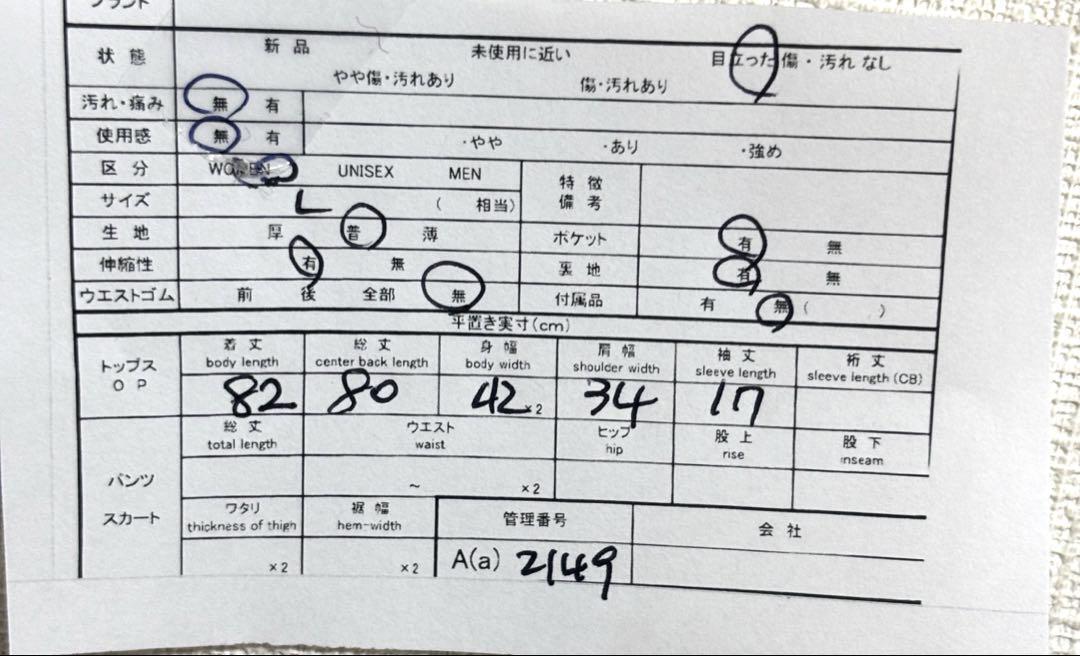 ブランド
状態 新品 未使用に近い 目立った傷・汚れなし
やや傷・汚れあり 傷・汚れあり
汚れ・痛み 無 有
使用感 無 有 ・やや ・あり ・強め
区分 WOMEN UNISEX MEN 特徴
サイズ L ( 相当) 備考
生地 厚 普 薄 ポケット 有 無
伸縮性 有 無 裏地 有 無
ウエストゴム 前 後 全部 無 付属品 有 無 ( )
平置き実寸(cm)
トップス 着丈 総丈 身幅 肩幅 袖丈 裄丈
OP body length center back length body width shoulder width sleeve length sleeve length (CB)
82 80 42×2 34 17
総丈 ウエスト ヒップ 股上 股下
total length waist hip rise inseam
パンツ ~ ×2
スカート ワタリ 裾幅 管理番号 会社
thickness of thigh hem-width
×2 ×2 A(a) 2149